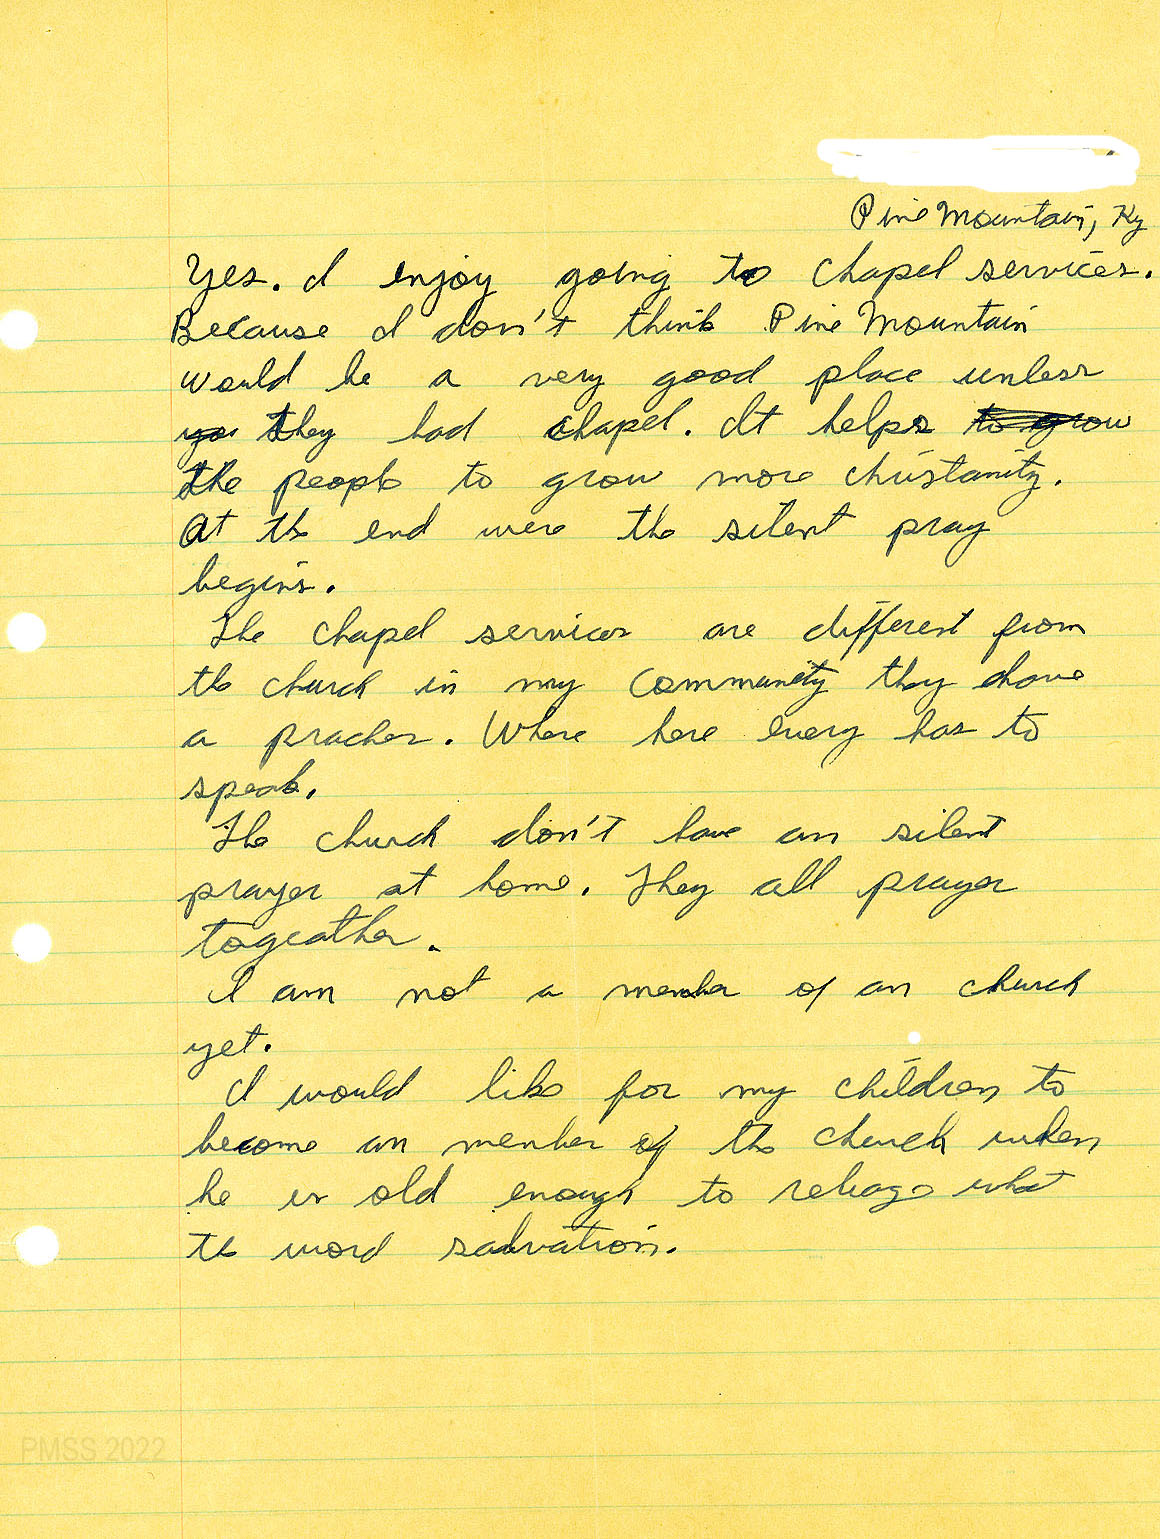 Pine Mountain, Ky
Yes. I enjoy going to Chapel services.
Because I don't think Pine Mountain
would be a very good place unless
yo they had chapel. It helps to grow
the people to grow more christanity.
At the end were the silent pray
begins.
The chapel services are different from
the church in my Community they have
a pracher. Where here every has to
speak.
The church don't have an silent
prayer at home. They all prayer
togeather.
I am not a member of an church
yet.
I would like for my children to
become an member of the church when
he is old enough to what
the word salvation.
PMSS 2022